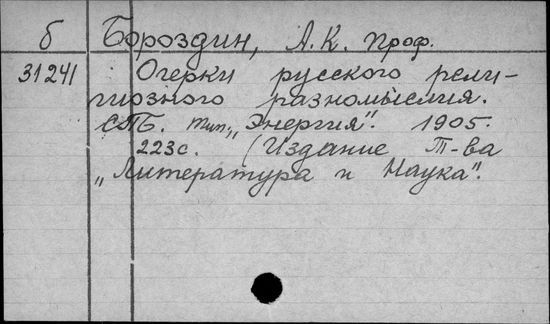 б Бороздин, А.К. проф.
31241 Очерки русского рели-
гиозного разномыслия.
СПБ. тип. „Энергия". 1905.
223с. (Издание Т-ва
„Литература и Наука".